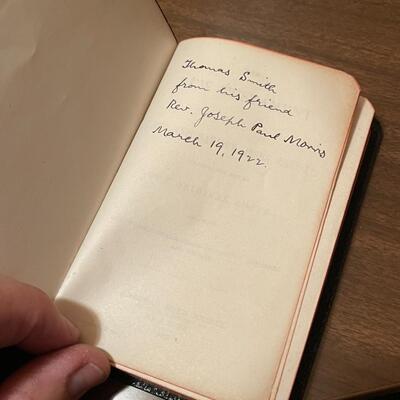 Thomas Smith
from his friend
Rev. Joseph Paul Morris
March 19, 1922.